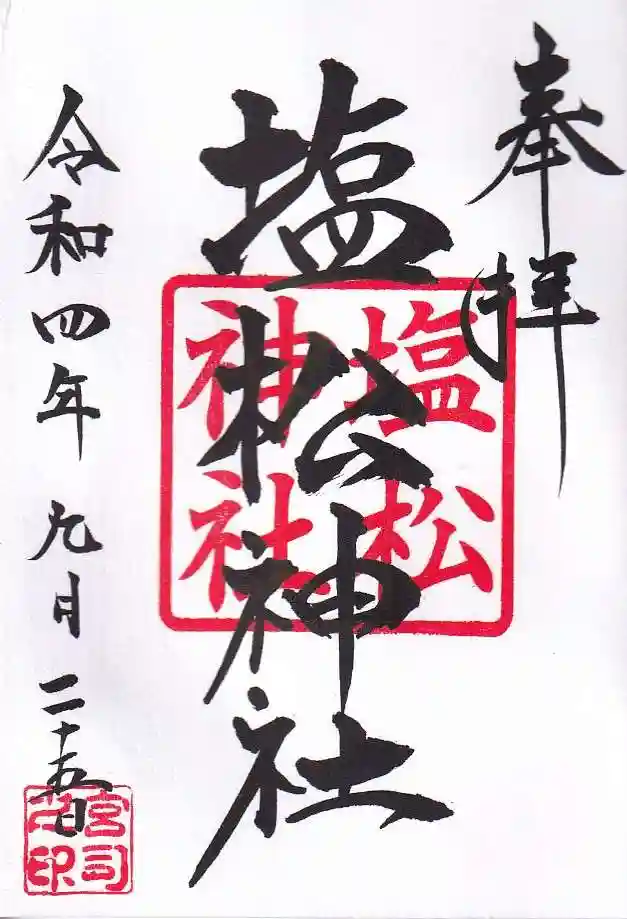 奉拝
塩松神社
塩松
神社
令和四年 九月 二十五日
宮司
之印